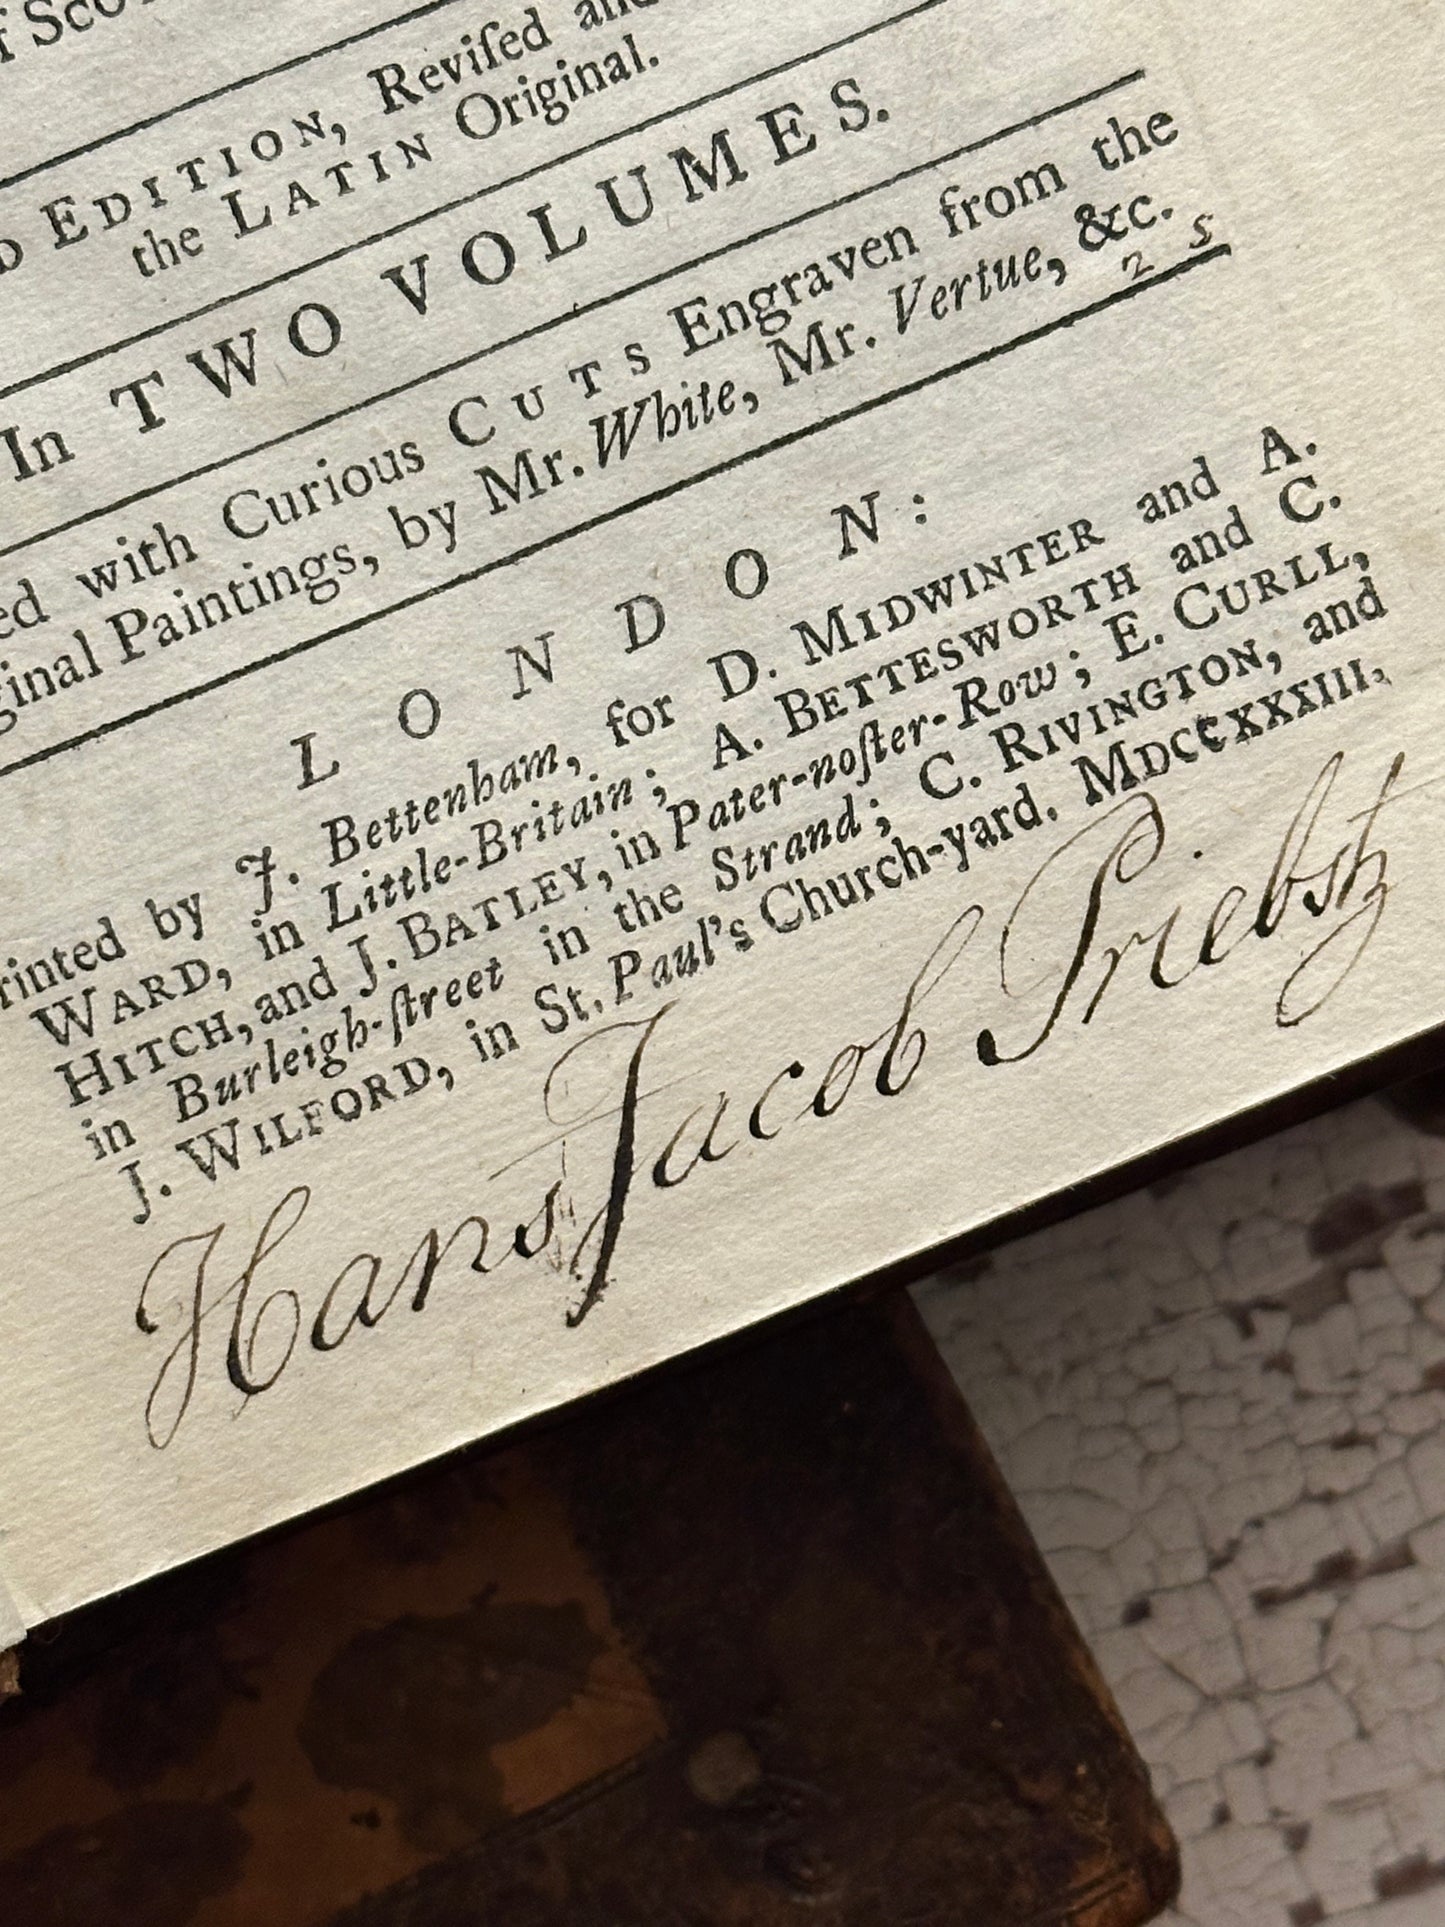 f Sco
D EDITION, Reviſed and
the LATIN Original.
In TWO VOLUMES.
ed with Curious CUTS Engraven from the
ginal Paintings, by Mr. White, Mr. Vertue, &c.
2 5
LONDON:
rinted by J. Bettenham, for D. MIDWINTER and A.
WARD, in Little-Britain; A. BETTESWORTH and C.
HITCH, and J. BATLEY, in Pater-noſter-Row; E. CURLL,
in Burleigh-ſtreet in the Strand; C. RIVINGTON, and
J. WILFORD, in St. Paul's Church-yard. MDCCXXXIII.
Hans Jacob Priebstz